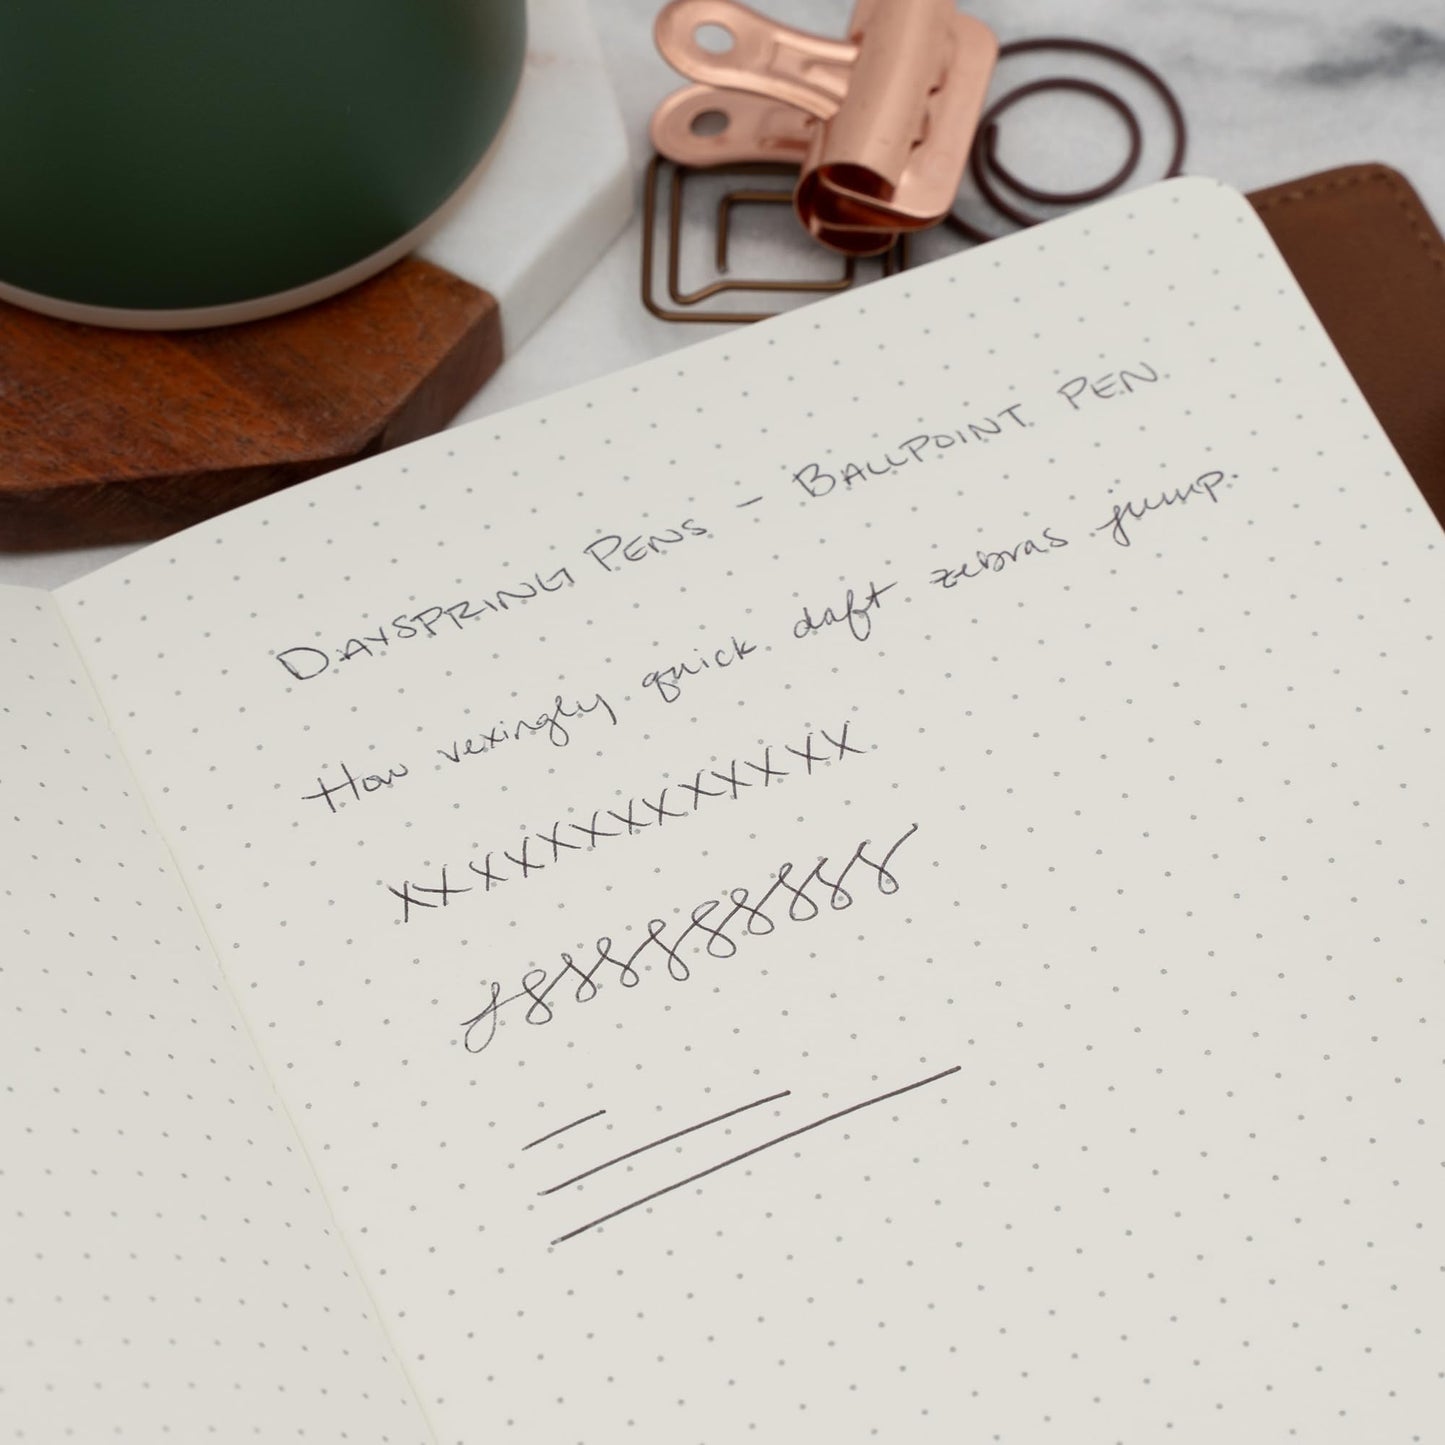 DAYSPRING PENS - BALLPOINT PEN
How vexingly quick daft zebras jump.
XXXXXXXXXXXXX